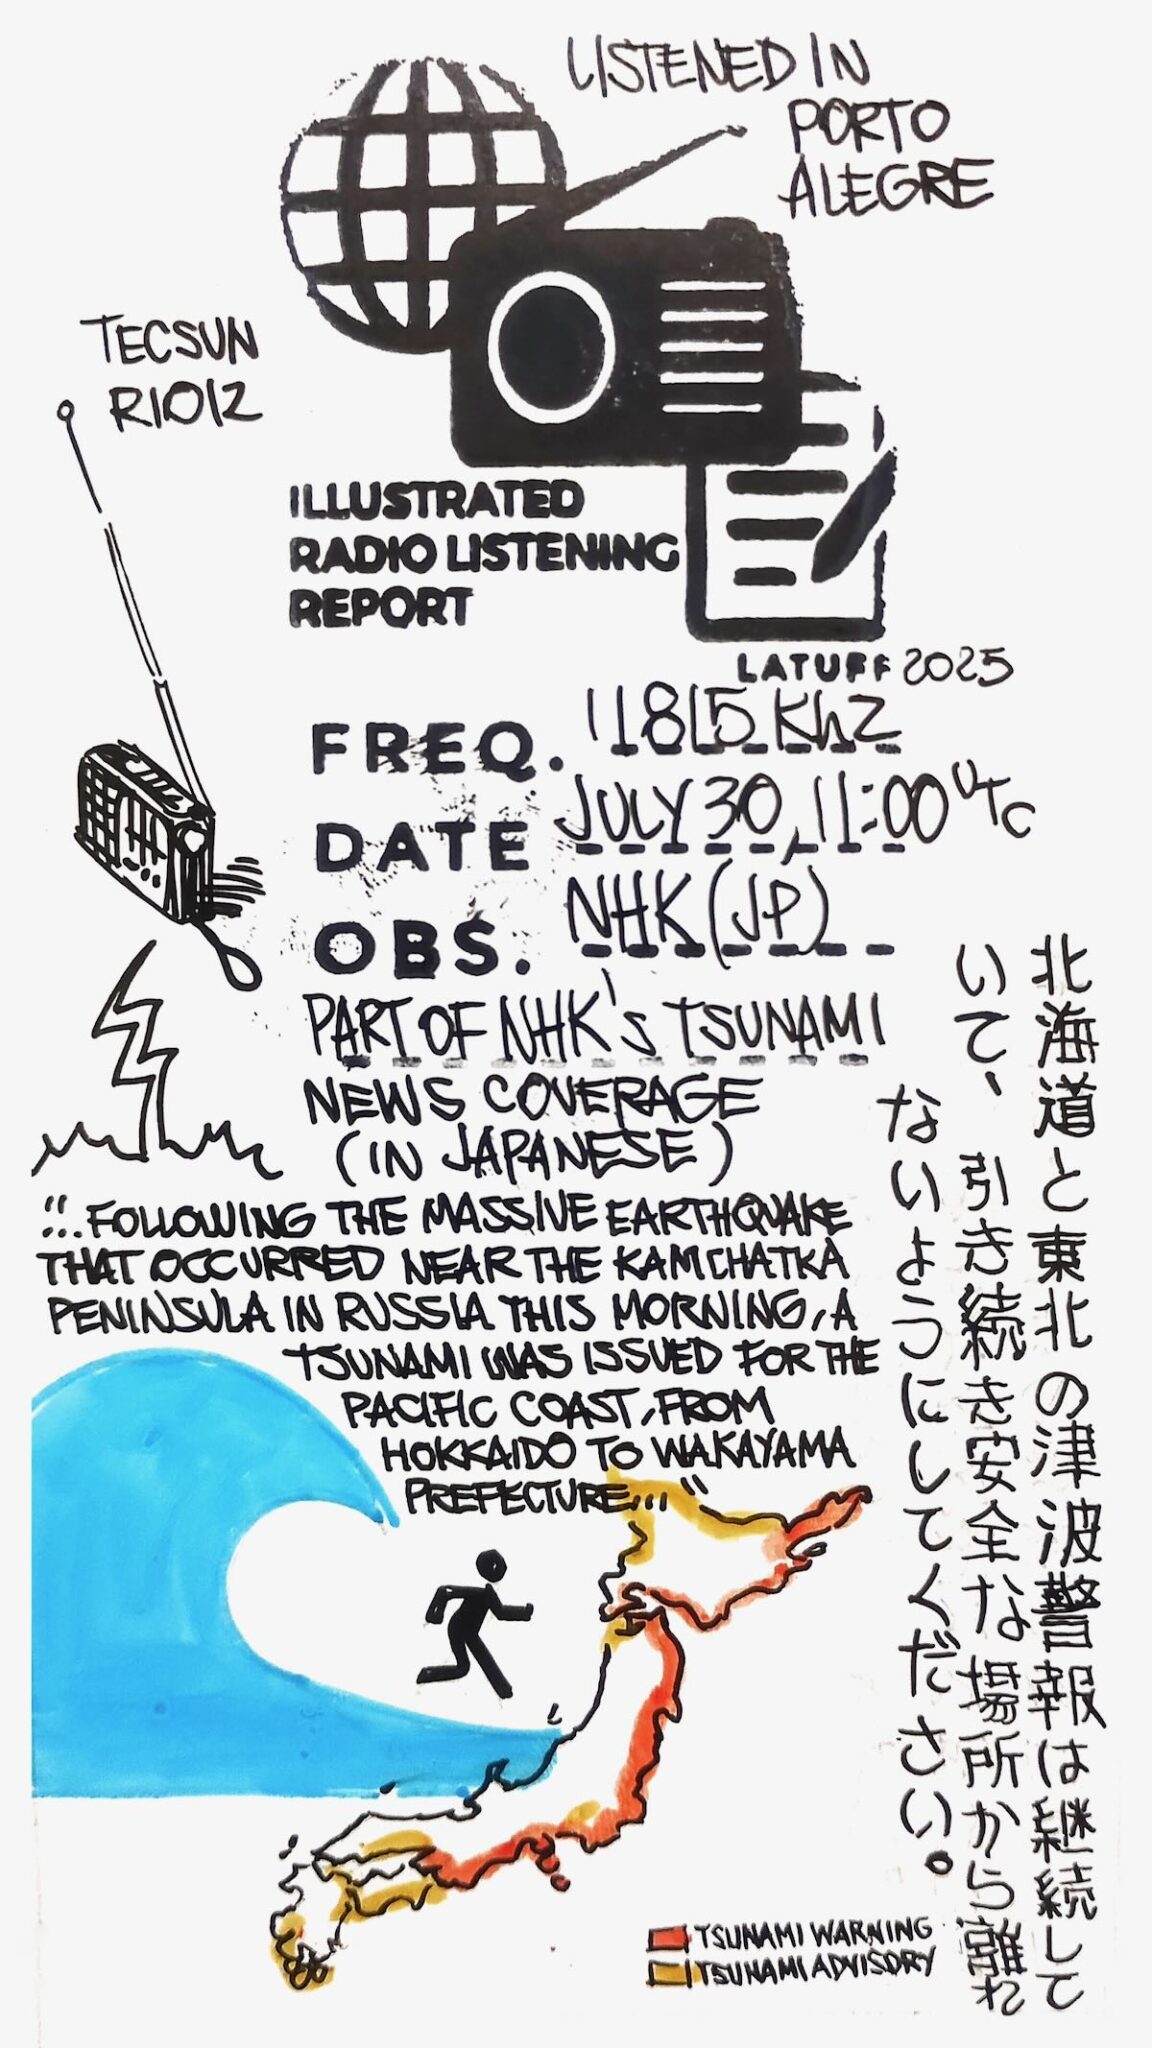 LISTENED IN
PORTO
ALEGRE
TECSUN
R1012
ILLUSTRATED
RADIO LISTENING
REPORT
LATUFF 2025
FREQ. 11815 KhZ
DATE JULY 30, 11:00 UTC
OBS. NHK (JP)
PART OF NHK's TSUNAMI
NEWS COVERAGE
(IN JAPANESE)
"...FOLLOWING THE MASSIVE EARTHQUAKE
THAT OCCURRED NEAR THE KAMCHATKA
PENINSULA IN RUSSIA THIS MORNING, A
TSUNAMI WAS ISSUED FOR THE
PACIFIC COAST, FROM
HOKKAIDO TO WAKAYAMA
PREFECTURE..."
北海道と東北の津波警報は継続して
いて、引き続き安全な場所から離れ
ないようにしてください。
TSUNAMI WARNING
TSUNAMI ADVISORY